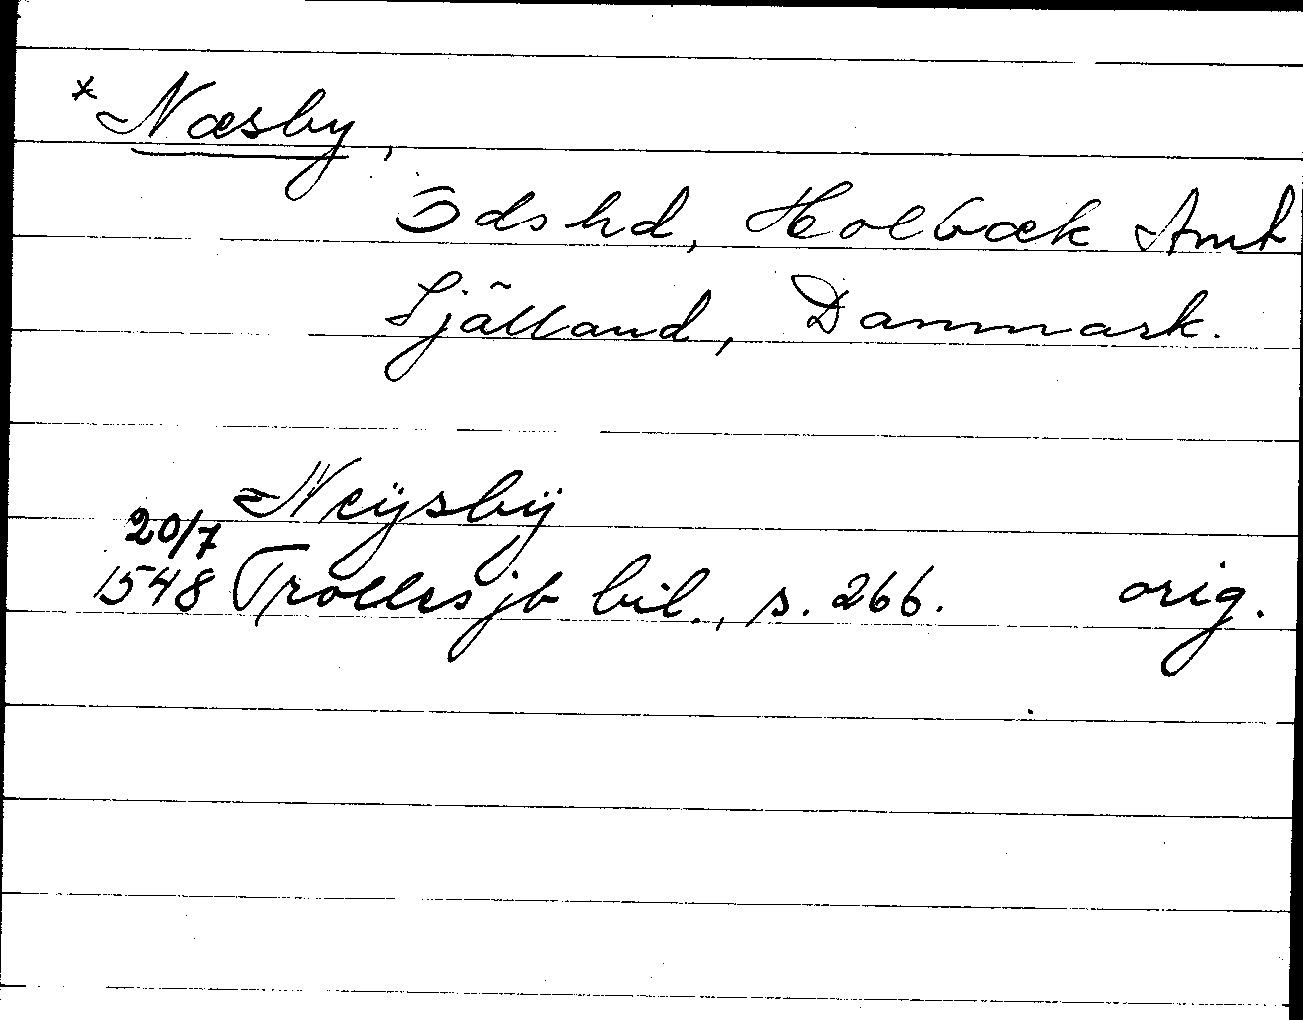 * Næsby,
Odshd, Holbæk Amt
Själland, Danmark.
Neÿsbÿ
20/7
1548 Trolles jb bil., s. 266. orig.